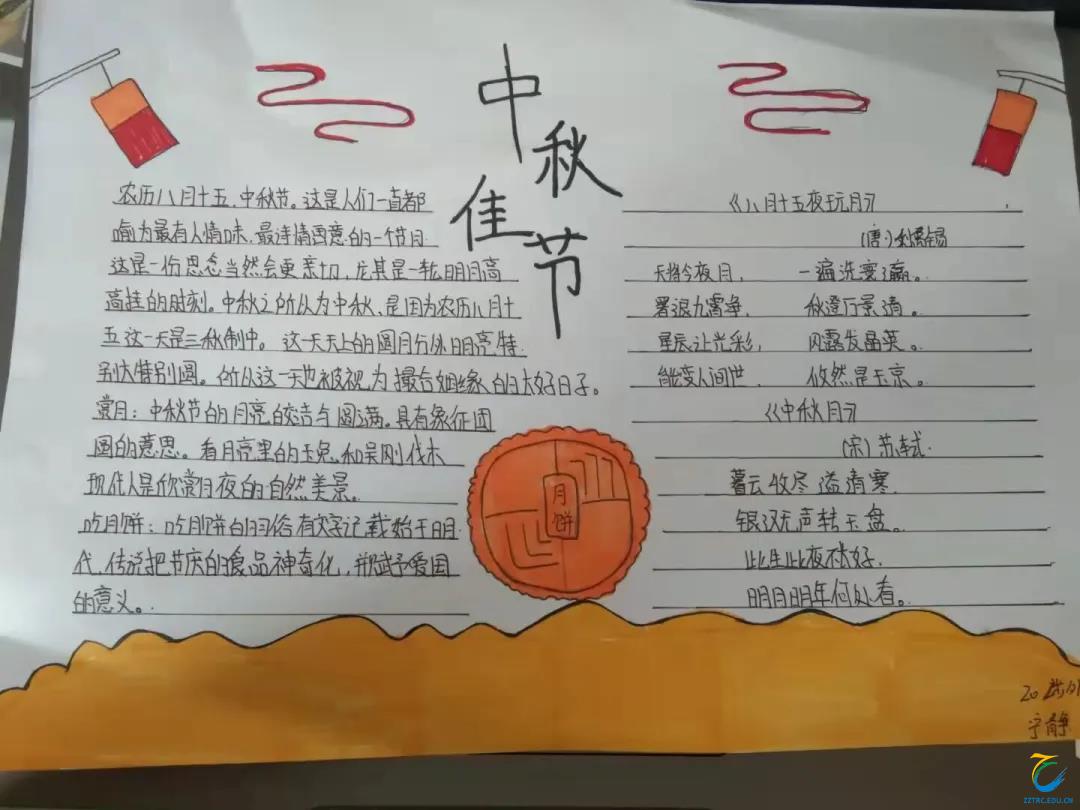 中秋佳节
农历八月十五,中秋节。这是人们一直都
喻为最有人情味,最诗情画意的一个节日
这是一份思念当然会更亲切,尤其是一轮明月高
高挂的时刻。中秋之所以为中秋,是因为农历八月十
五这一天是三秋制中。这一天天上的圆月分外明亮特
别大特别圆。所以这一天也被视为撮合姻缘的大好日子。
赏月:中秋节的月亮的皎洁与圆满。具有象征团
圆的意思。看月亮里的玉兔和吴刚伐木
现代人是欣赏月夜的自然美景。
吃月饼:吃月饼的习俗有文字记载始于明
代,传说把节庆的食品神奇化,并赋予爱国
的意义。
月饼
《八月十五夜玩月》
(唐)刘禹锡
天将今夜月, 一遍洗寰瀛。
暑退九霄净, 秋澄万景清。
星辰让光彩, 风露发晶英。
能变人间世, 攸然是玉京。
《中秋月》
(宋)苏轼
暮云收尽溢清寒,
银汉无声转玉盘。
此生此夜不长好,
明月明年何处看。
宁静
ZZTRC.EDU.CN